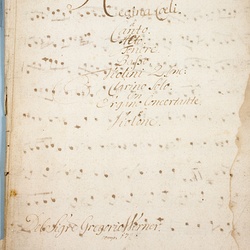 Regina Coeli.
à
Canto
Alto
Tenore
Basso
Violini
Clarino Solo.
Con
Organo Concertante
Violone.
Del Sigre Gregorio Werner.